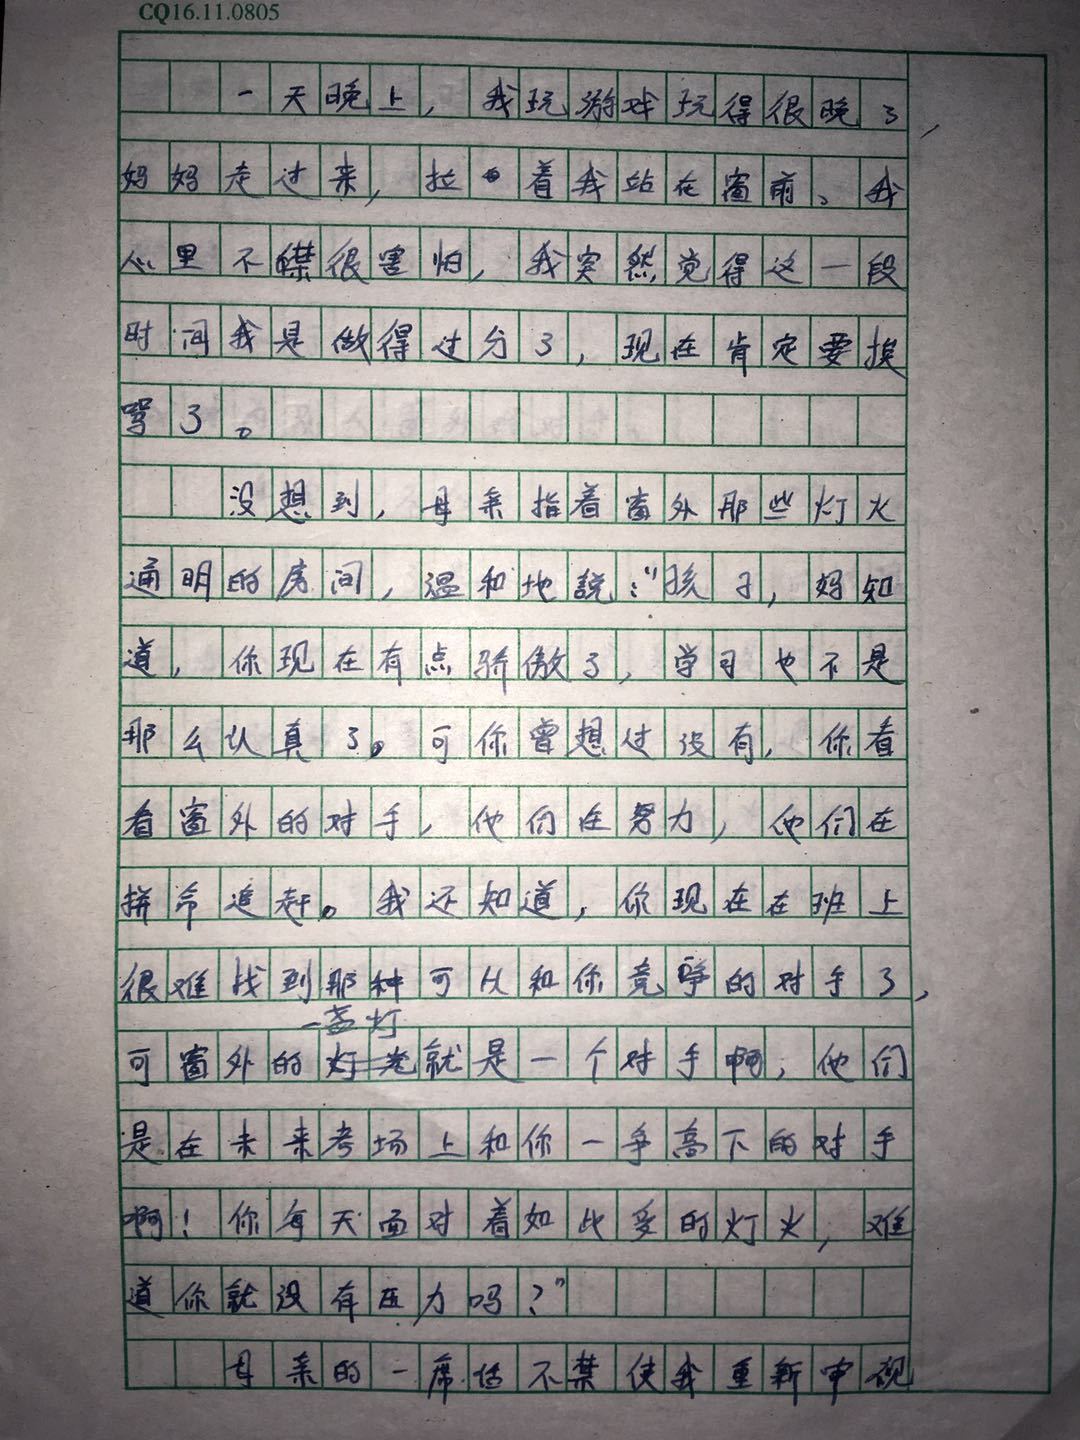 CQ16.11.0805
一天晚上，我玩游戏玩得很晚了，
妈妈走过来，拉着我站在窗前、我
心里不禁很害怕，我突然觉得这一段
时间我是做得过分了，现在肯定要挨
骂了。
没想到，母亲指着窗外那些灯火
通明的房间，温和地說：“孩子，妈知
道，你现在有点骄傲了，学习也不是
那么认真了。可你曾想过没有，你看
看窗外的对手，他们在努力，他们在
拼命追赶。我还知道，你现在在班上
很难找到那种可以和你竞争的对手了，
一盏灯
可窗外的灯光就是一个对手啊，他们
是在未来考场上和你一争高下的对手
啊！你每天面对着如此多的灯火，难
道你就没有压力吗？”
母亲的一席话不禁使我重新审视